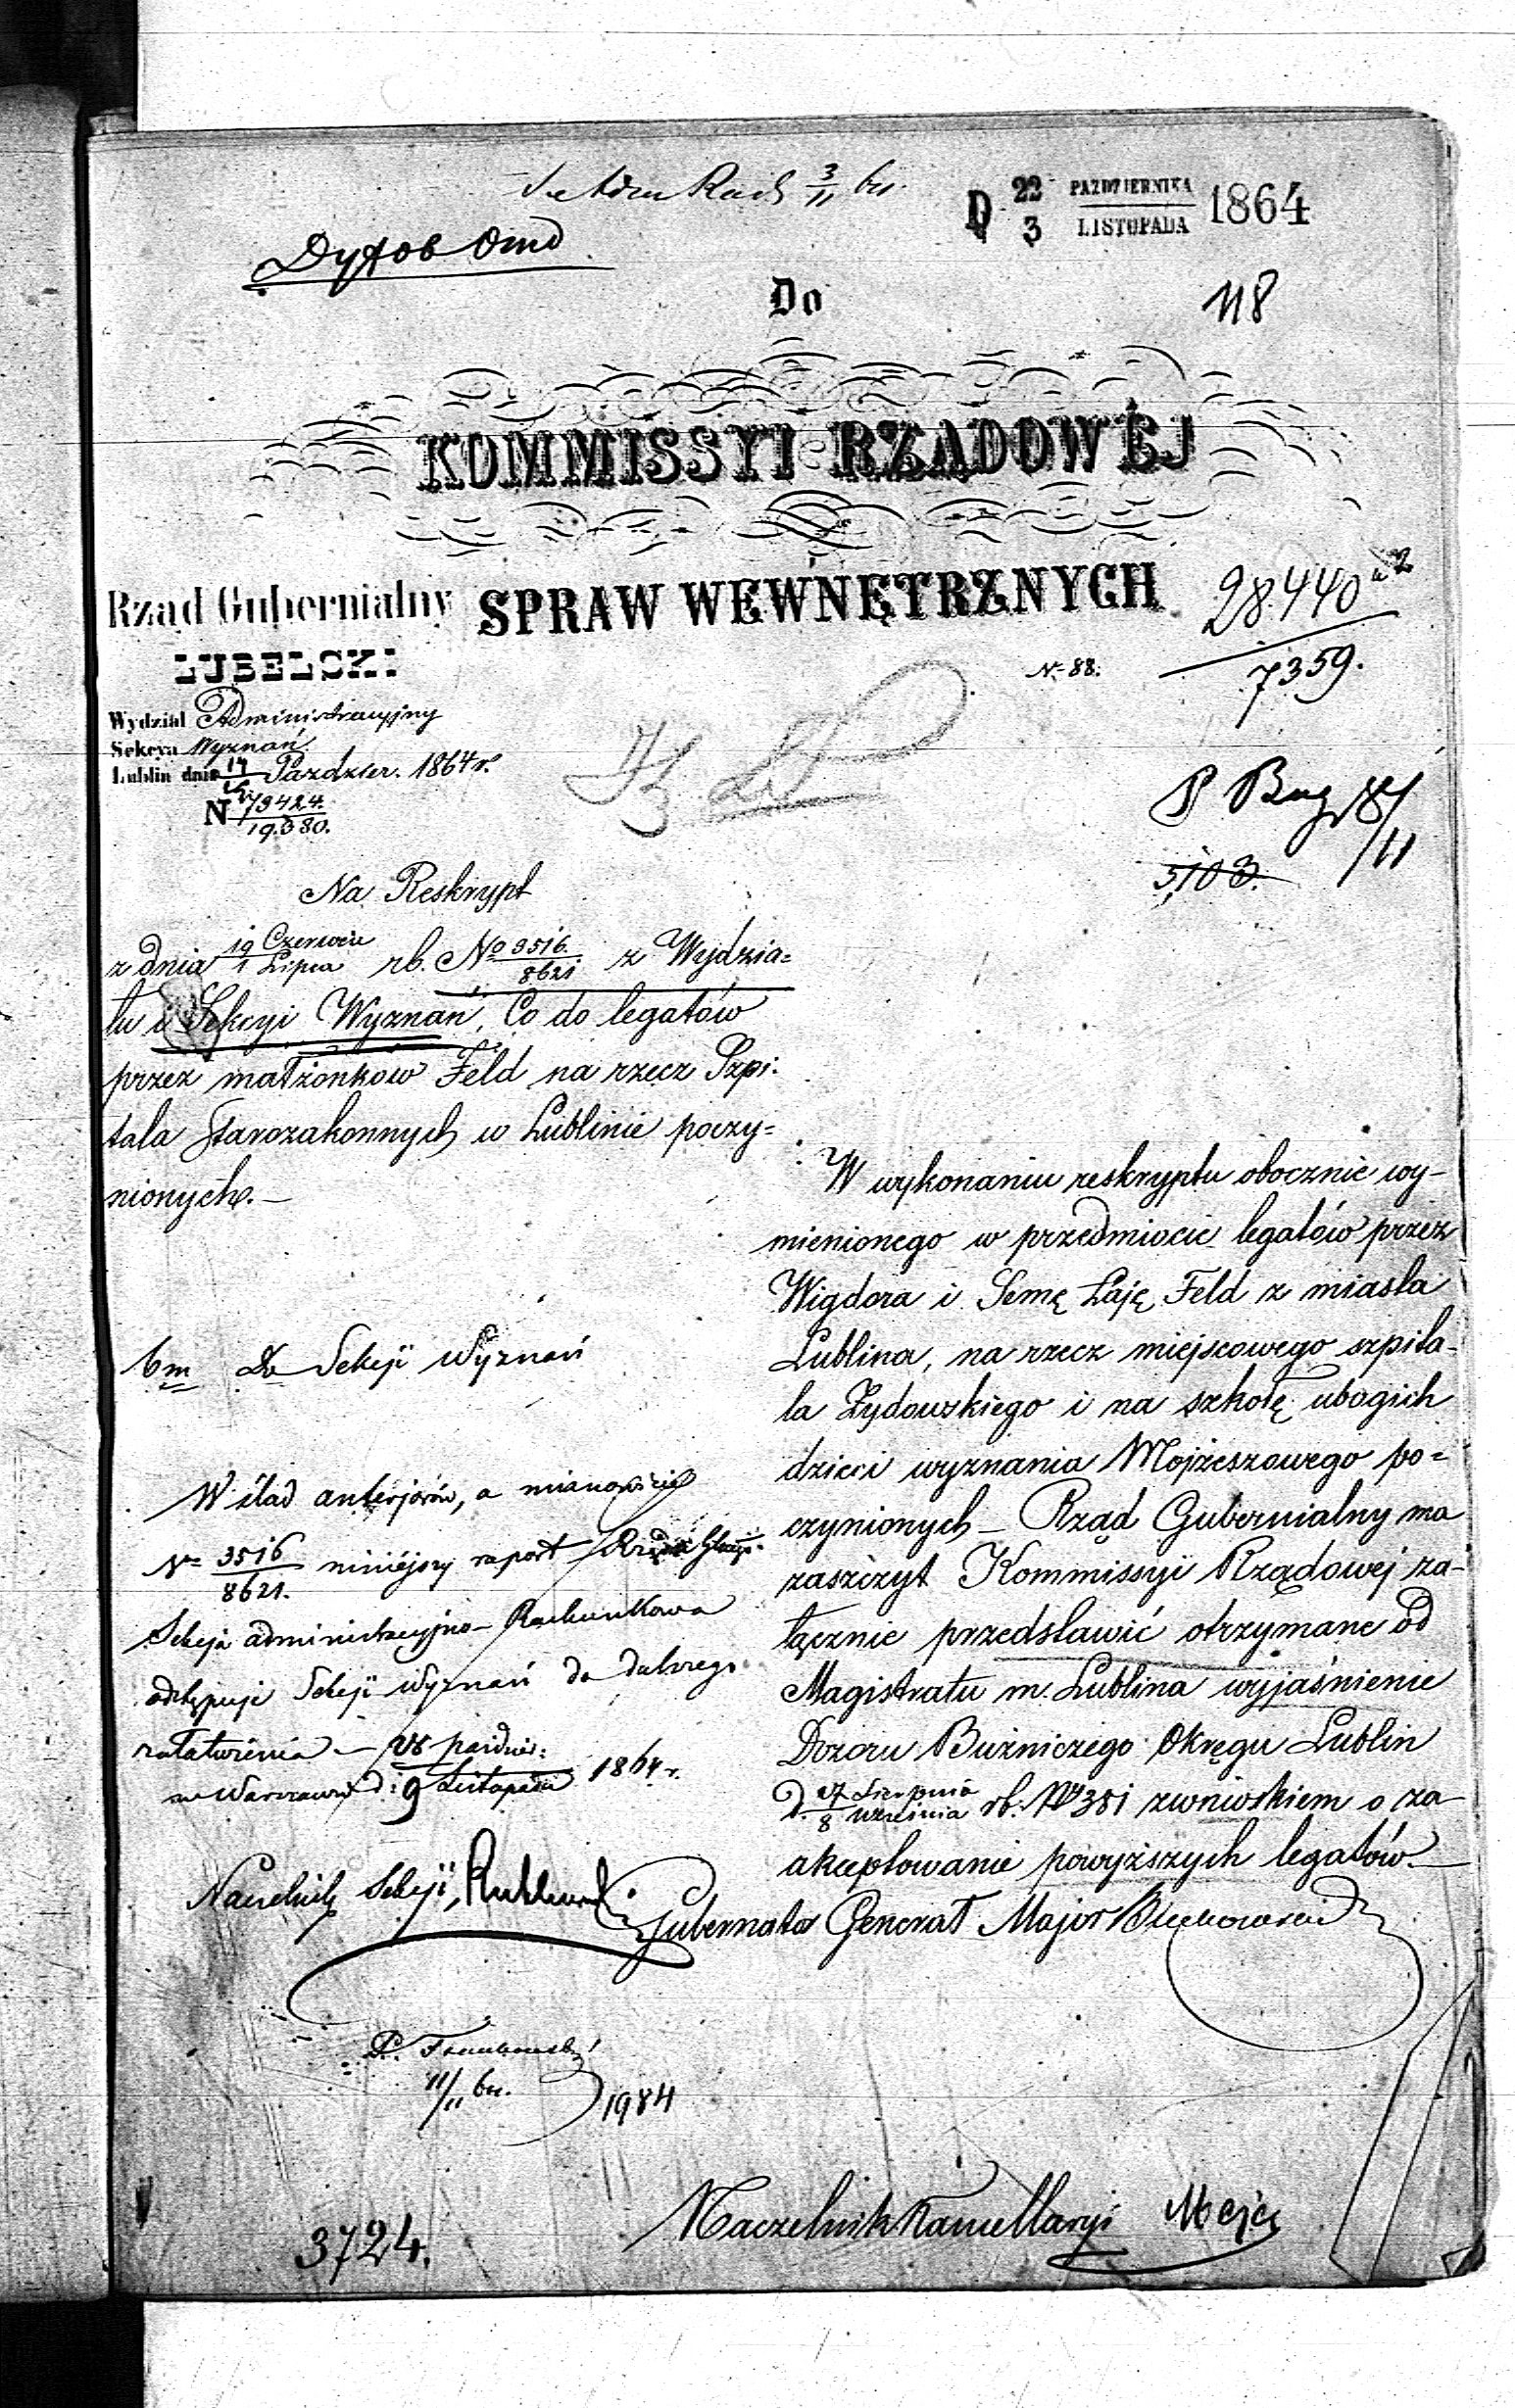 D 22/3 PAŹDZIERNIKA/LISTOPADA 1864
118
Do
KOMMISSYI RZĄDOWÉJ
SPRAW WEWNĘTRZNYCH
28.440
7359.
N 88.
Rząd Gubernialny
LUBELSKI
Wydział Administracyjny
Sekcya Wyznań
Lublin dnia Paździer. 1864 r.
N 79424.
19.380.
P
/11
5,103.
Na Reskrypt
z dnia 19 Czerwca/1 Lipca rb. No 3516./8621 z Wydzia=
łu i Sekcyi Wyznań, Co do legatów
przez małżonkow Feld na rzecz Szpi:
tala Starozakonnych w Lublinie poczy=
nionych.—
W wykonaniu reskryptu obocznie wy-
mienionego w przedmiocie legatów przez
Wigdora i Semę Łaję Feld z miasta
Lublina, na rzecz miejscowego szpita-
la Żydowskiego i na szkołę ubogich
dzieci wyznania Mojżeszowego po=
czynionych – Rząd Gubernialny ma
zaszczyt Kommissyi Rządowej za-
łącznie przedstawić otrzymane od
Magistratu m. Lublina wyjaśnienie
Dozoru Bużniczego Okręgu Lublin
d. 27 Sierpnia/8 Września rb. No 381 zwnioskiem o za-
akceptowanie powyższych legatów.—
Gubernator Generał Major
bm Do Sekcji Wyznań
W ślad anterjorów, a mianowicie
No 3516/8621. niniéjszy raport Rządu
Sekcja administracyjno-Rachunkowa
odstępuje Sekcji Wyznań do dalszego
załatwienia –
w Warszawie d: 28 paźdźier:/9 Listopada 1864 r.
Naczelnik Sekcji,
P.
11/11 br.
1984
Naczelnik Kancellaryi
3724.